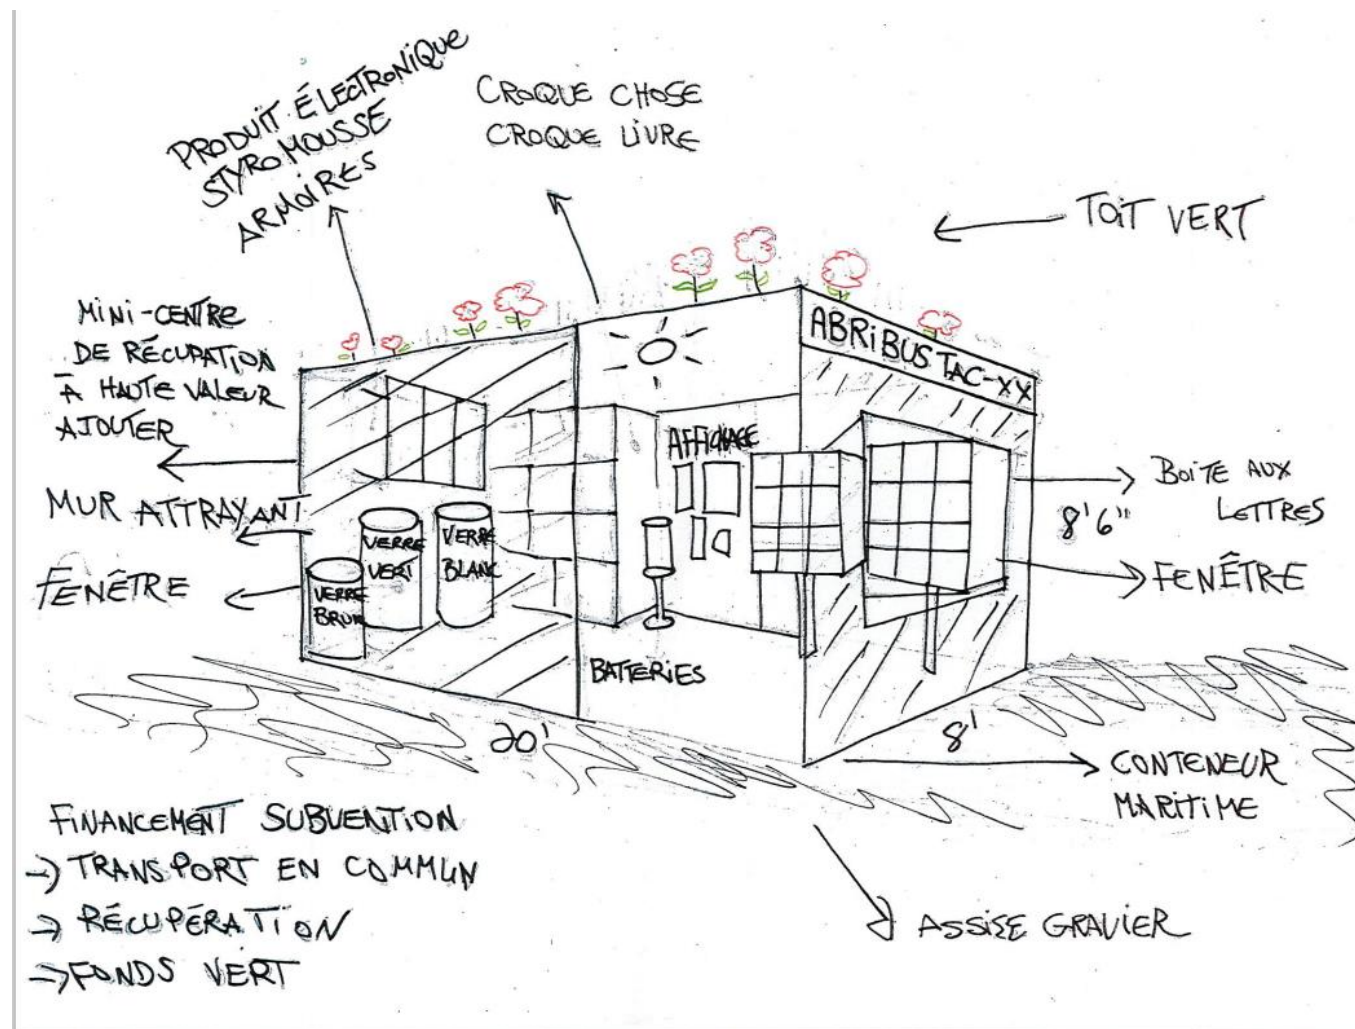 PRODUIT ÉLECTRONIQUE
STYROMOUSSE
ARMOIRES
CROQUE CHOSE
CROQUE LIVRE
TOIT VERT
MINI-CENTRE
DE RÉCUPATION
À HAUTE VALEUR
AJOUTER
MUR ATTRAYANT
FENÊTRE
ABRIBUS TAC-XX
AFFICHAGE
VERRE
VERT
VERRE
BLANC
VERRE
BRUN
BATTERIES
BOITE AUX
LETTRES
8'6"
FENÊTRE
20'
8'
CONTENEUR
MARITIME
ASSISE GRAVIER
FINANCEMENT SUBVENTION
→ TRANSPORT EN COMMUN
→ RÉCUPÉRATION
→ FONDS VERT